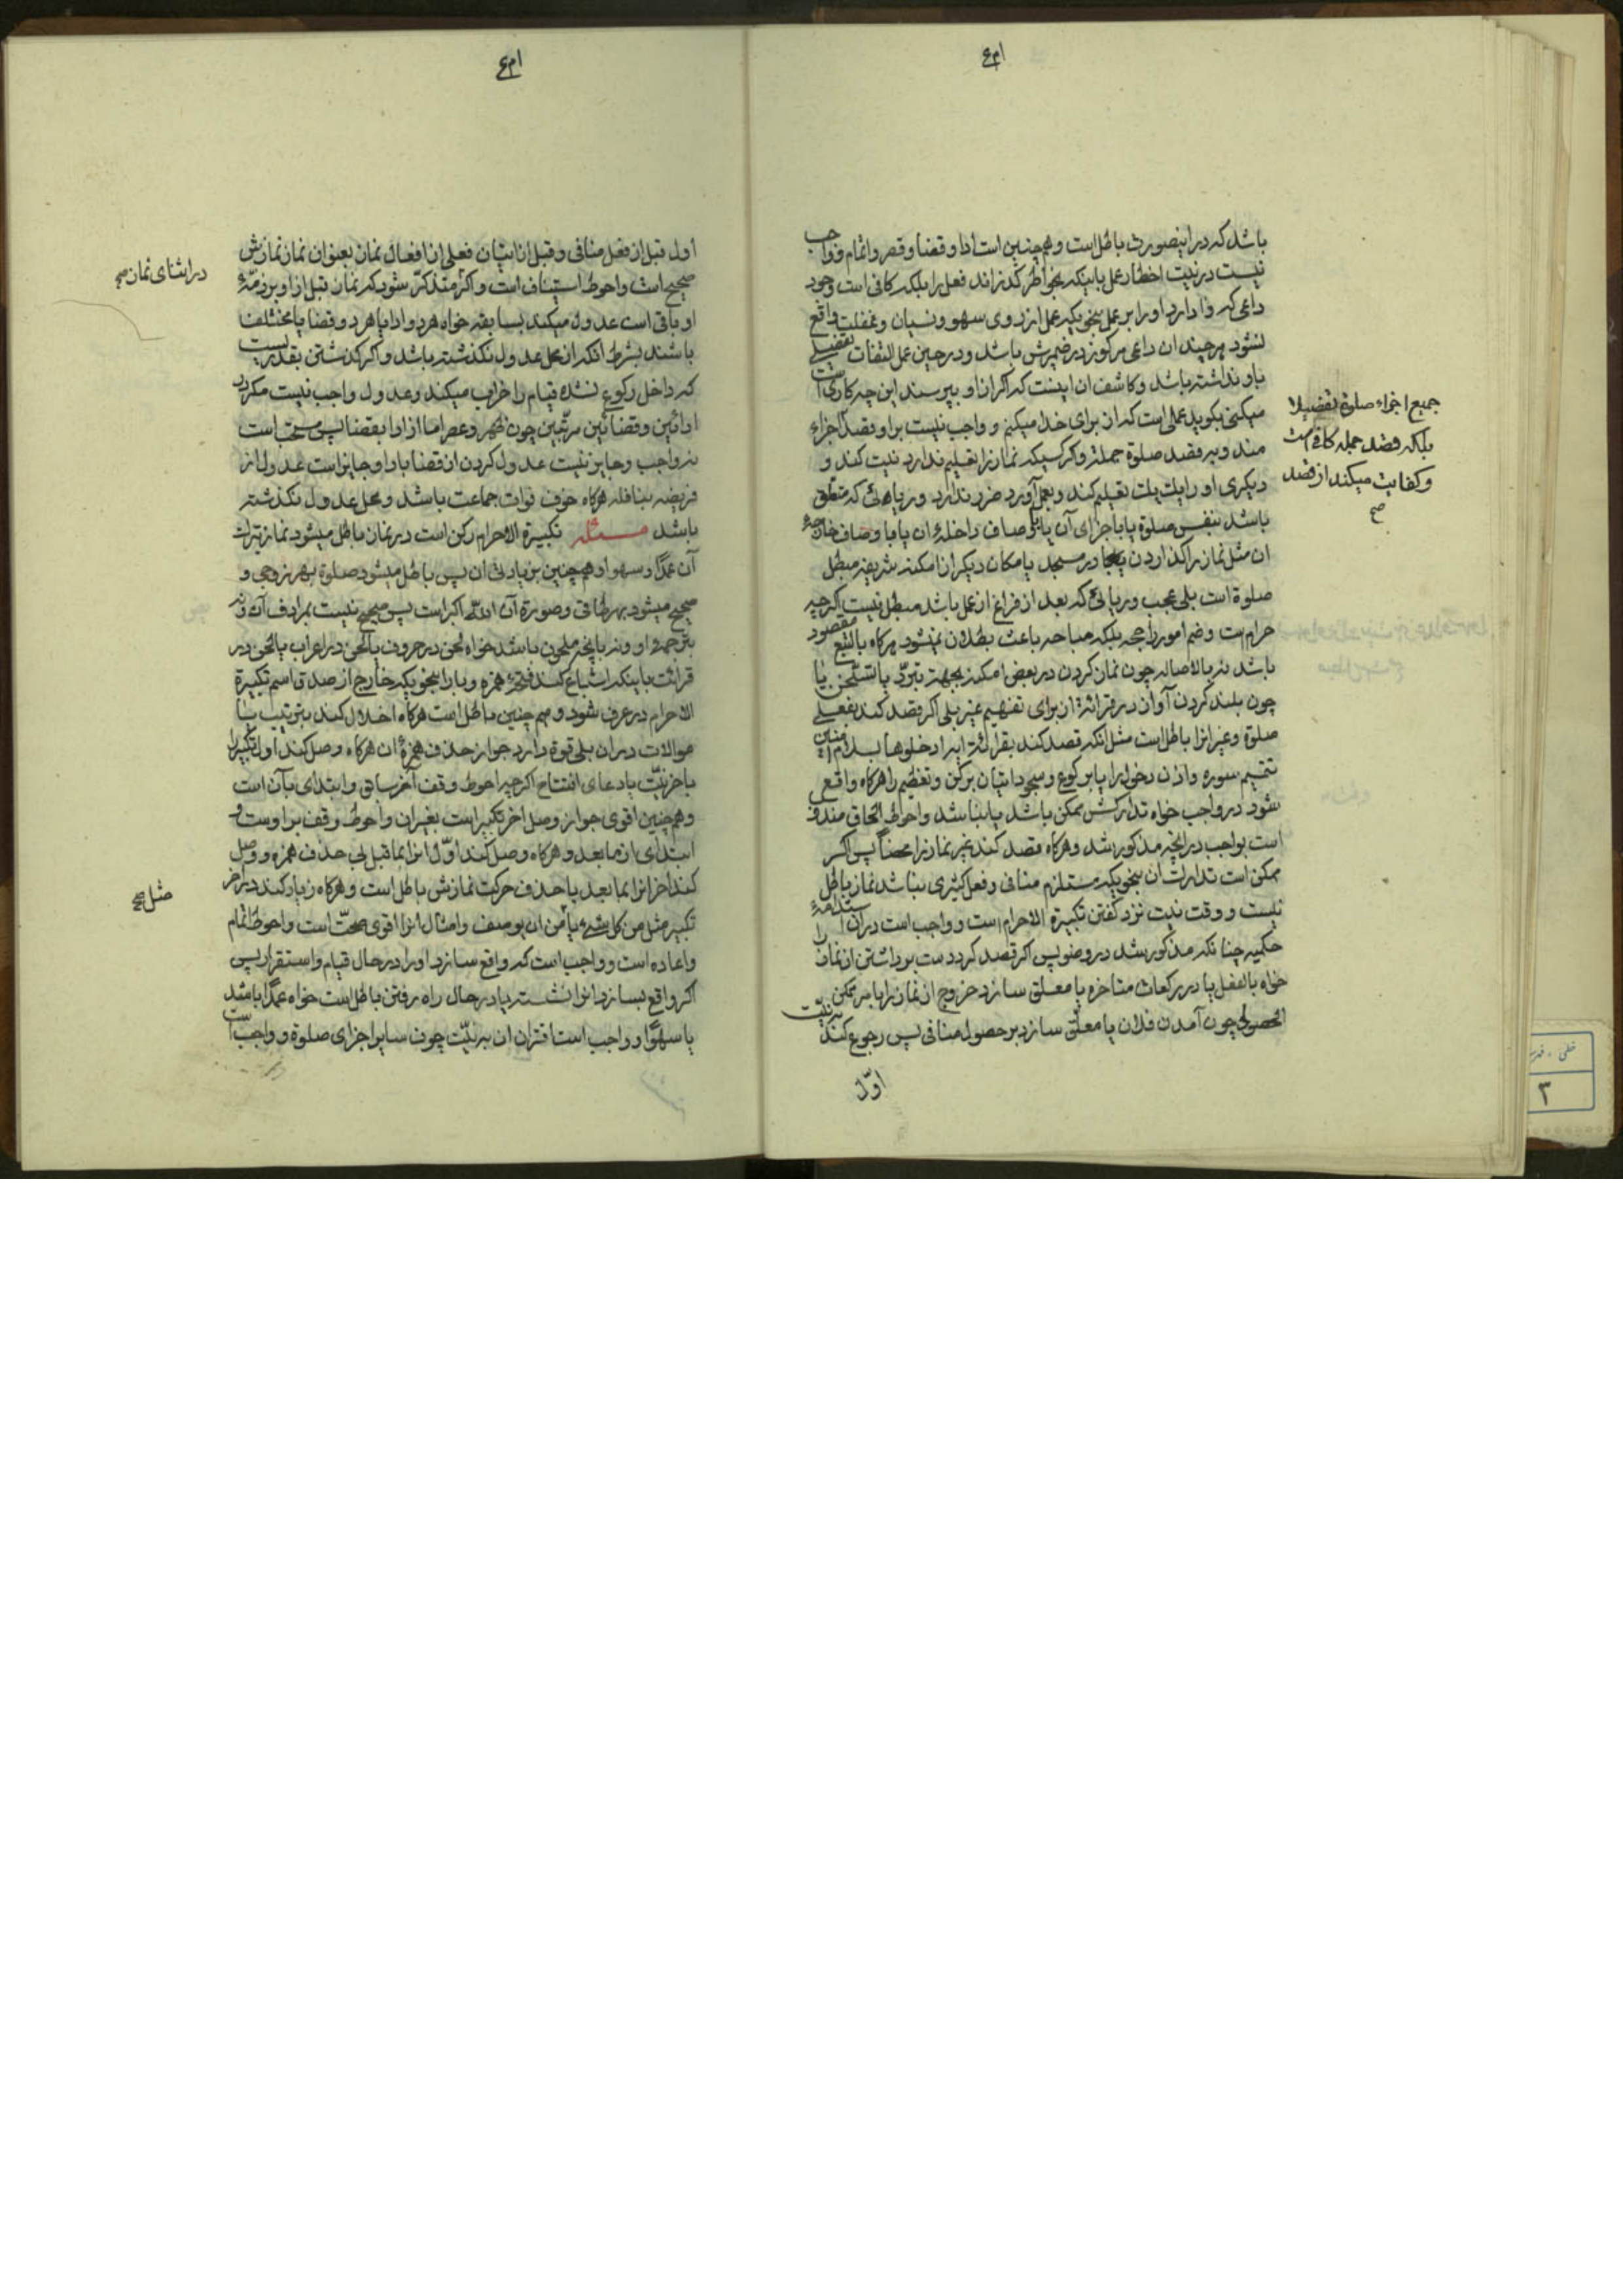 باشد که در اینصورت باطل است و همچنین است ادا و قضا و قصر و اتمام و واجب
نیست در نیت اخطار عمل باینکه بخواطر گذراند فعل را بلکه کافی است وجود
داعی که وا دارد او را بر عمل بنحویکه عمل از روی سهو و نسیان و غفلت واقع
نشود هر چند ان داعی مرکوز در ضمیرش باشد و در حین عمل التفات تفصیلی
باو نداشته باشد و کاشف ان اینست که اگر از او بپرسند این چه کاری است
میکنی بگوید عملی است که از برای خدا میکنم و واجب نیست بر او قصد اجزاء
مندوبه قصد صلوة جملة و اگر کسیکه نماز را تعلیم ندارد نیت کند و
دیگری او را یک یک تعلیم کند و بعمل آورد ضرر ندارد و ریاهائی که متعلق
باشد بنفس صلوة یا باجزای آن یا باوصاف داخلهٔ ان یا باوصاف خارجهٔ
ان مثل نماز را گذاردن در مسجد یا مکان دیگر از امکنه شریفه مبطل
صلوة است بلی عجب و ریائی که بعد از فراغ از عمل باشد مبطل نیست اگرچه
حرام است و ضم امور راجحه بلکه مباحه باعث بطلان نمیشود هرگاه بالتبع مقصود
باشد نه بالاصاله چون نماز کردن در بعض امکنه بجهة تبرّد یا تسخن یا
چون بلند کردن آواز در قرائة از برای تفهیم غیر بلی اگر قصد کند بفعلی
صلوة و غیر انرا باطل است مثل انکه قصد کند بقرائة ایه ادخلوها بسلام امنین
تتمیم سوره و اذن دخول را یا برکوع و سجود اتیان برکن و تعظیم را هرگاه واقع
شود در واجب خواه تدارکش ممکن باشد یا نباشد و احوط الحاق مندوب
است بواجب در انچه مذکور شد و هرگاه قصد کند غیر نماز را محضاً پس اگر
ممکن است تدارک ان بنحویکه مستلزم منافی و فعل کثیری نباشد نماز باطل
نیست و وقت نیت نزد گفتن تکبیرة الاحرام است و واجب است در ان استدامهٔ
حکمیه چنانکه مذکور شد در وضو پس اگر قصد کرد دست برداشتن از نماز را
خواه بالفعل یا در رکعات متاخره یا معلق سازد خروج از نماز را بامر ممکن
الحصولی چون آمدن فلان یا معلّق سازد بر حصول منافی پس رجوع کند به نیّت
اوّل
جمیع اجزاء صلوة تفصیلا
بلکه قصد جمله کافی است
و کفایت میکند از قصد
صح
اول قبل از فعل منافی و قبل از اتیان فعلی از افعال نماز بعنوان نماز نمازش
صحیح است و احوط استیناف است و اگر متذکّر شود که نماز قبل از او بر ذمّهٔ
او باقی است عدول میکند بسابقه خواه هر دو ادا یا هر دو قضا یا مختلف
باشند بشرط انکه از محل عدول نگذشته باشد و اگر گذشتن بقدریست
که داخل رکوع نشده قیام را خراب میکند و عدول واجب نیست مگر در
ادائین و قضائین مرتّبین چون ظهر و عصر اما از ادا بقضا پس مستحب است
نه واجب و جایز نیست عدول کردن از قضا بادا و جایز است عدول از
فریضه بنافله هرگاه خوف فوات جماعت باشد و محل عدول نگذشته
باشد مسئله تکبیرة الاحرام رکن است در نماز باطل میشود نماز بترک
آن عمداً و سهوا و همچنین بزیادتی ان پس باطل میشود صلوة بهر زوجی و
صحیح میشود بهر طاقی و صورة آن الله اکبر است پس صحیح نیست بمرادف آن و نه
بترجمهٔ او و نه بانچه ملحون باشد خواه لحن در حروف یا لحن در اعراب یا لحن در
قرائت باینکه اشباع کند فتحهٔ همزه و با را بنحویکه خارج از صدق اسم تکبیرة
الاحرام در عرف شود و همچنین باطل است هرگاه اخلال کند بترتیب یا
موالات در ان بلی قوة دارد جواز حذف همزهٔ ان هرگاه وصل کند اول تکبیر را
باخر نیّت یا دعای افتتاح اگرچه احوط وقف آخر سابق و ابتدای بآن است
و همچنین اقوی جواز وصل اخر تکبیر است بغیر ان و احوط وقف بر اوست و
ابتدای از ما بعد و هرگاه وصل کند اوّل انرا بما قبل بی حذف همزه و وصل
کند اخر انرا بما بعد با حذف حرکت نمازش باطل است و هرگاه زیاد کند در اخر
تکبیر مثل من کل شیء یا من ان یوصف و امثال انرا اقوی صحّت است و احوط اتمام
و اعاده است و واجب است که واقع سازد او را در حال قیام و استقرار پس
اگر واقع بسازد انرا نشسته یا در حال راه رفتن باطل است خواه عمداً باشد
یا سهوًا و واجب است اقتران ان به نیّت چون سایر اجزای صلوة و واجب است
در اثنای نماز صح
مثل صح
خطی
۳